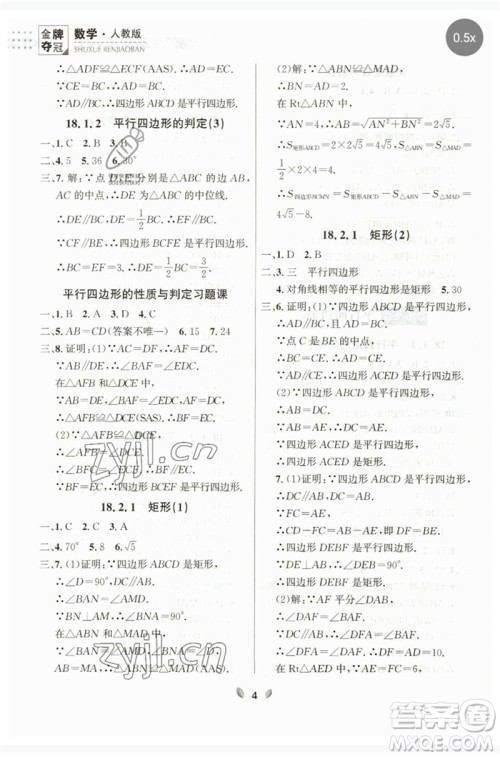 金牌夺冠 数学·人教版
SHUXUE RENJIAOBAN
0.5x
∴△ADF≌△ECF(AAS). ∴AD=CE.
∵AD∥BC, ∴四边形ABCE是平行四边形.
18.1.2 平行四边形的判定(3)
一、1. C 2. B 3. B
二、4. 5 5. 36 6. 30°
三、7. 解:∵点D,E分别是边AB,AC的中点,
∴DE是△ABC的中位线.
∴DE∥BC,DE=1/2BC.
∵CF∥BE,∴四边形BCFE是平行四边形.
∴BC=EF=3. ∴DE=1/2BC=3/2.
平行四边形的性质与判定习题课
一、1. C 2. C 3. A 4. B
二、5. AB=CD(答案不唯一) 6. 15 7. 24
三、8. 证明:(1)∵AC=DF,∴AF=DC.
∵AB∥DE,∴∠A=∠D.
在△AFB和△DCE中,
∵AB=DE,∠A=∠D,AF=DC,
∴△AFB≌△DCE(SAS).
(2)∵△AFB≌△DCE,
∴∠AFB=∠DCE,BF=EC.
∴∠BFC=∠ECF. ∴BF∥EC.
∵BF=EC,∴四边形BCEF是平行四边形.
18.2.1 矩形(1)
一、1. C 2. C 3. A
二、4. 70° 5. 8 6. √5
三、7. (1)证明:∵四边形ABCD是矩形,
∴∠D=90°,DC∥AB.
∴∠BAN=∠AMD.
∵BN⊥AM,∴∠BNA=90°.
在△ABN和△MAD中,
∵∠BAN=∠AMD,∠BNA=∠D=90°,
AB=MA,∴△ABN≌△MAD(AAS).
(2)解:∵△ABN≌△MAD,
∴BN=AD=4.
在Rt△ABN中,AN=2,
∴AB=√AN²+BN²=2√5.
∴S矩形ABCD=2×2√5=4√5,S△ABN=S△MAD=
1/2×2×4=4. ∴S四边形BCMN=S矩形ABCD−S△ABN−S△MAD=
4√5−8.
18.2.1 矩形(2)
一、1. D 2. B
二、3. 三 平行四边形
4. 对角线相等的平行四边形是矩形 5. 30
三、6. 证明:(1)∵四边形ABCD是平行四边形,
∴AD=BC,AD∥BC.
∵点C是BE的中点,
∴BC=CE. ∴AD=CE.
∵AD∥CE,
∴四边形ACED是平行四边形.
(2)∵四边形ABCD是平行四边形,
∴AB=DC.
∵AB=AE,∴DC=AE.
∵四边形ACED是平行四边形,
∴四边形ACED是矩形.
7. (1)证明:∵四边形ABCD是平行四边形,
∴DC∥AB.
∵DF=BE,
∴四边形DEBF是平行四边形.
∵DE⊥AB,∴∠DEB=90°.
∴四边形DEBF是矩形.
(2)解:∵AF平分∠DAB,
∴∠DAF=∠FAB.
∵DC∥AB,∴∠DFA=∠FAB.
∴∠DFA=∠DAF. ∴AD=DF=10.
在Rt△AED中,∵AE=FC=6,
4
zyjl.cn